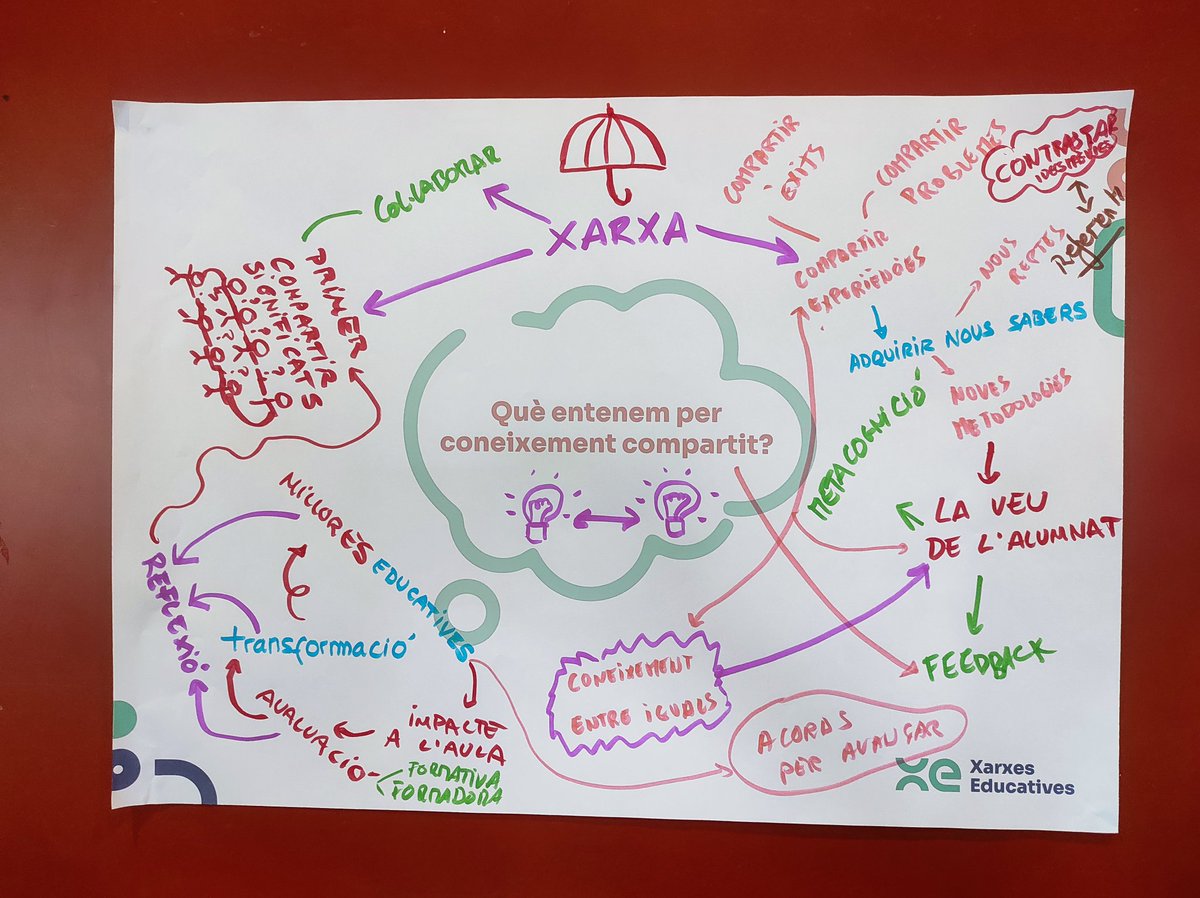 XARXA
COL·LABORAR
PRIMER
COMPARTIR
SIGNIFICATS
COMPARTIR
ÈXITS
COMPARTIR
PROBLEMES
CONTRASTAR
Referents
COMPARTIR
EXPERIÈNCIES
NOUS
REPTES
ADQUIRIR NOUS SABERS
METACOGNICIÓ
NOVES
METODOLOGIES
Què entenem per
coneixement compartit?
LA VEU
DE L'ALUMNAT
FEEDBACK
MILLORES EDUCATIVES
REFLEXIÓ
transformació
AVALUACIÓ
FORMATIVA
FORMADORA
IMPACTE
A L'AULA
CONEIXEMENT
ENTRE IGUALS
ACORDS
PER AVANÇAR
xe Xarxes
Educatives